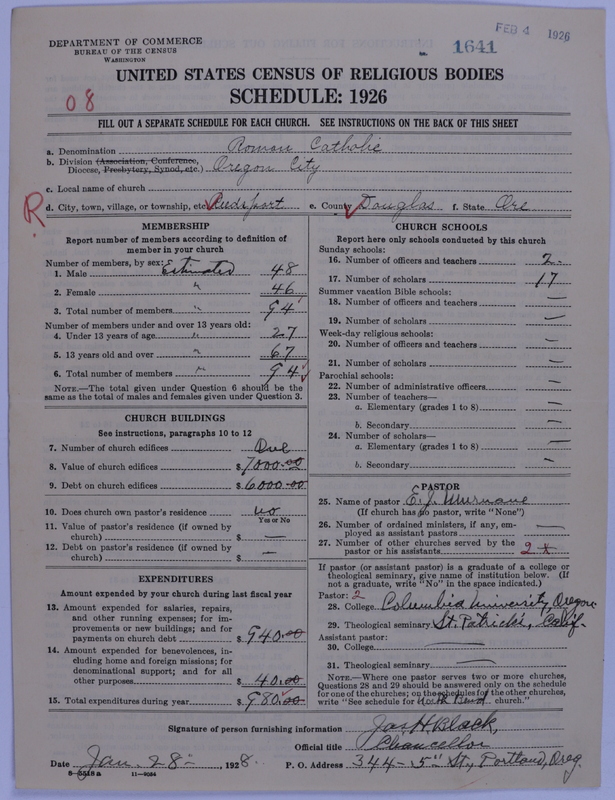 FEB 4 1926
DEPARTMENT OF COMMERCE
BUREAU OF THE CENSUS
WASHINGTON
1641
UNITED STATES CENSUS OF RELIGIOUS BODIES
08
SCHEDULE: 1926
FILL OUT A SEPARATE SCHEDULE FOR EACH CHURCH. SEE INSTRUCTIONS ON THE BACK OF THIS SHEET
a. Denomination Roman Catholic
b. Division (Association, Conference, Diocese, Presbytery, Synod, etc.) Oregon City
c. Local name of church
R d. City, town, village, or township, etc. Reedsport e. County Douglas f. State Ore
MEMBERSHIP
Report number of members according to definition of
member in your church
Number of members, by sex:
1. Male Estimated 48
2. Female " 46
3. Total number of members " 94
Number of members under and over 13 years old:
4. Under 13 years of age " 27
5. 13 years old and over " 67
6. Total number of members " 94
NOTE.—The total given under Question 6 should be the
same as the total of males and females given under Question 3.
CHURCH BUILDINGS
See instructions, paragraphs 10 to 12
7. Number of church edifices One
8. Value of church edifices $ 7000.00
9. Debt on church edifices $ 6000.00
10. Does church own pastor's residence no
Yes or No
11. Value of pastor's residence (if owned by
church) $ —
12. Debt on pastor's residence (if owned by
church) $ —
EXPENDITURES
Amount expended by your church during last fiscal year
13. Amount expended for salaries, repairs,
and other running expenses; for im-
provements or new buildings; and for
payments on church debt $ 940.00
14. Amount expended for benevolences, in-
cluding home and foreign missions; for
denominational support; and for all
other purposes $ 40.00
15. Total expenditures during year $ 980.00
CHURCH SCHOOLS
Report here only schools conducted by this church
Sunday schools:
16. Number of officers and teachers 2
17. Number of scholars 17
Summer vacation Bible schools:
18. Number of officers and teachers —
19. Number of scholars —
Week-day religious schools:
20. Number of officers and teachers —
21. Number of scholars —
Parochial schools:
22. Number of administrative officers —
23. Number of teachers—
a. Elementary (grades 1 to 8) —
b. Secondary —
24. Number of scholars—
a. Elementary (grades 1 to 8) —
b. Secondary —
PASTOR
25. Name of pastor E. J. Murnane
(If church has no pastor, write "None")
26. Number of ordained ministers, if any, em-
ployed as assistant pastors —
27. Number of other churches served by the
pastor or his assistants 2 x
If pastor (or assistant pastor) is a graduate of a college or
theological seminary, give name of institution below. (If
not a graduate, write "No" in the space indicated.)
Pastor: 2
28. College Columbia University, Oregon
29. Theological seminary St. Patricks, Calif.
Assistant pastor:
30. College —
31. Theological seminary —
NOTE.—Where one pastor serves two or more churches,
Questions 28 and 29 should be answered only on the schedule
for one of the churches; on the schedules for the other churches,
write "See schedule for North Bend church."
Signature of person furnishing information Jas. H. Black,
Official title Chancellor
Date Jan. 28 1928. P. O. Address 344-5th St., Portland, Oreg.
8-5518 a 11-9034